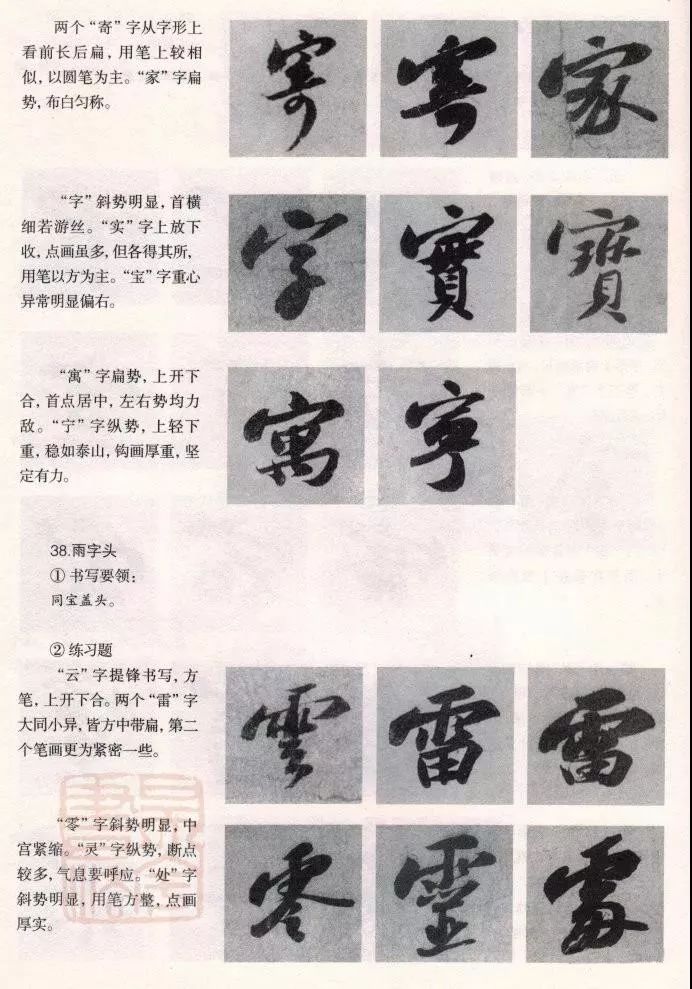 两个“寄”字从字形上
看前长后扁，用笔上较相
似，以圆笔为主。“家”字扁
势，布白匀称。
寄 寄 家
“字”斜势明显，首横
细若游丝。“实”字上放下
收，点画虽多，但各得其所，
用笔以方为主。“宝”字重心
异常明显偏右。
字 實 寳
“寓”字扁势，上开下
合，首点居中，左右势均力
敌。“宁”字纵势，上轻下
重，稳如泰山，钩画厚重，坚
定有力。
寓 寧
38.雨字头
①书写要领：
同宝盖头。
②练习题
“云”字提锋书写，方
笔，上开下合。两个“雷”字
大同小异，皆方中带扁，第二
个笔画更为紧密一些。
雲 雷 雷
“零”字斜势明显，中
宫紧缩。“灵”字纵势，断点
较多，气息要呼应。“处”字
斜势明显，用笔方整，点画
厚实。
零 靈